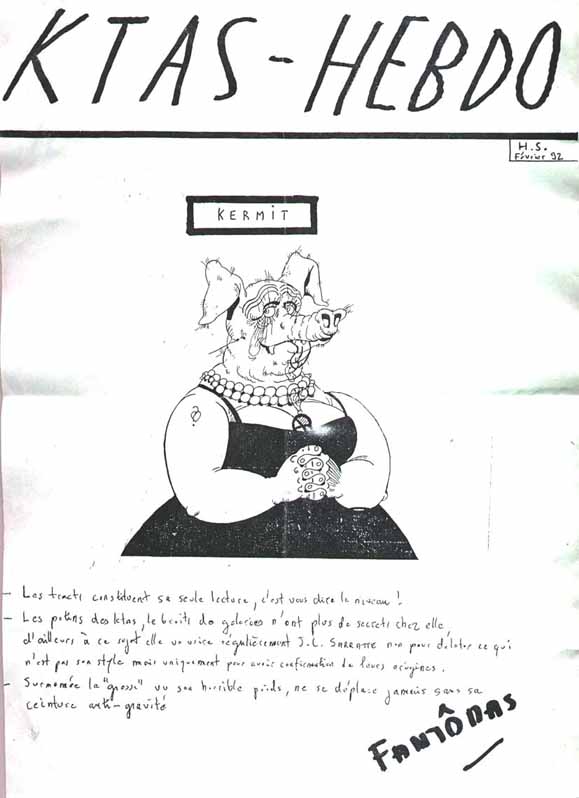 KTAS-HEBDO
H.S.
Février 92
KERMIT
- Les tracts constituent sa seule lecture, c'est vous dire le niveau !
- Les potins des ktas, le bruits des galeries n'ont plus de secrets chez elle
d'ailleurs à ce sujet elle va voir régulièrement J.L. non pour délater ce qui
n'est pas son style mais uniquement pour avoir confirmation de leurs origines.
- Surnommée la "grosse" vu son horrible poids, ne se déplace jamais sans sa
ceinture anti-gravité
FANTÔDAS